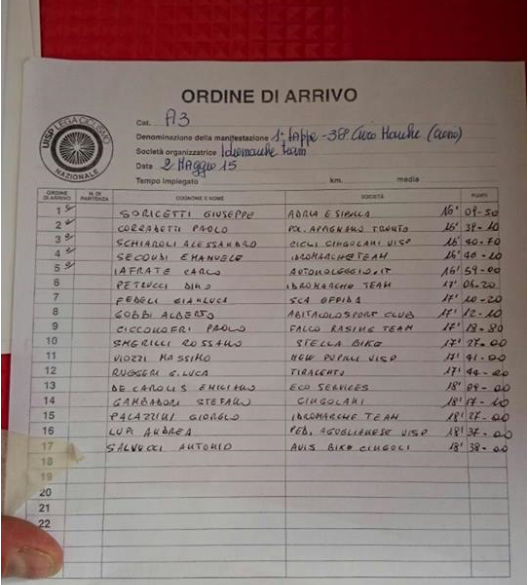 ORDINE DI ARRIVO
UISP LEGA CICLISMO NAZIONALE
Cat. A3
Denominazione della manifestazione 1ª tappa - 38º Giro Marche (crono)
Società organizzatrice Idromarche team
Data 2 Maggio 15
Tempo impiegato km. media
ORDINE DI ARRIVO N. DI PARTENZA COGNOME E NOME SOCIETÀ PUNTI
1 SORICETTI GIUSEPPE ADRIA E SIBILLA 16' 09-50
2 CORRADETTI PAOLO 16' 39-10
3 SCHIAROLI ALESSANDRO CICLI CINGOLANI UISP 16' 40-70
4 SECONDI EMANUELE IDROMARCHE TEAM 16' 46-10
5 IAFRATE CARLO AUTONOLEGGIO.IT 16' 59-00
6 PETRUCCI DINO IDROMARCHE TEAM 17' 06-20
7 FEDELI GIANLUCA SCA OFFIDA 17' 10-20
8 GOBBI ALBERTO SPORT CLUB 17' 12-10
9 PAOLO FALCO RASING TEAM 17' 18-80
10 SMERILLI ROSSANO STELLA BIKE 17' 27-00
11 VIOZZI MASSIMO NEW UISP 17' 41-00
12 RUGGERI G.LUCA TIRALENTO 17' 44-20
13 DE CAROLIS EMILIANO ECO SERVICES 18' 09-00
14 GAMBADORI STEFANO CINGOLANI 18' 17-10
15 PALAZZINI GIORGIO IDROMARCHE TEAM 18' 27-00
16 LUPI ANDREA PED. AGUGLIANESE UISP 18' 37-00
17 SALVUCCI ANTONIO AVIS BIKE CINGOLI 18' 38-00
18
19
20
21
22